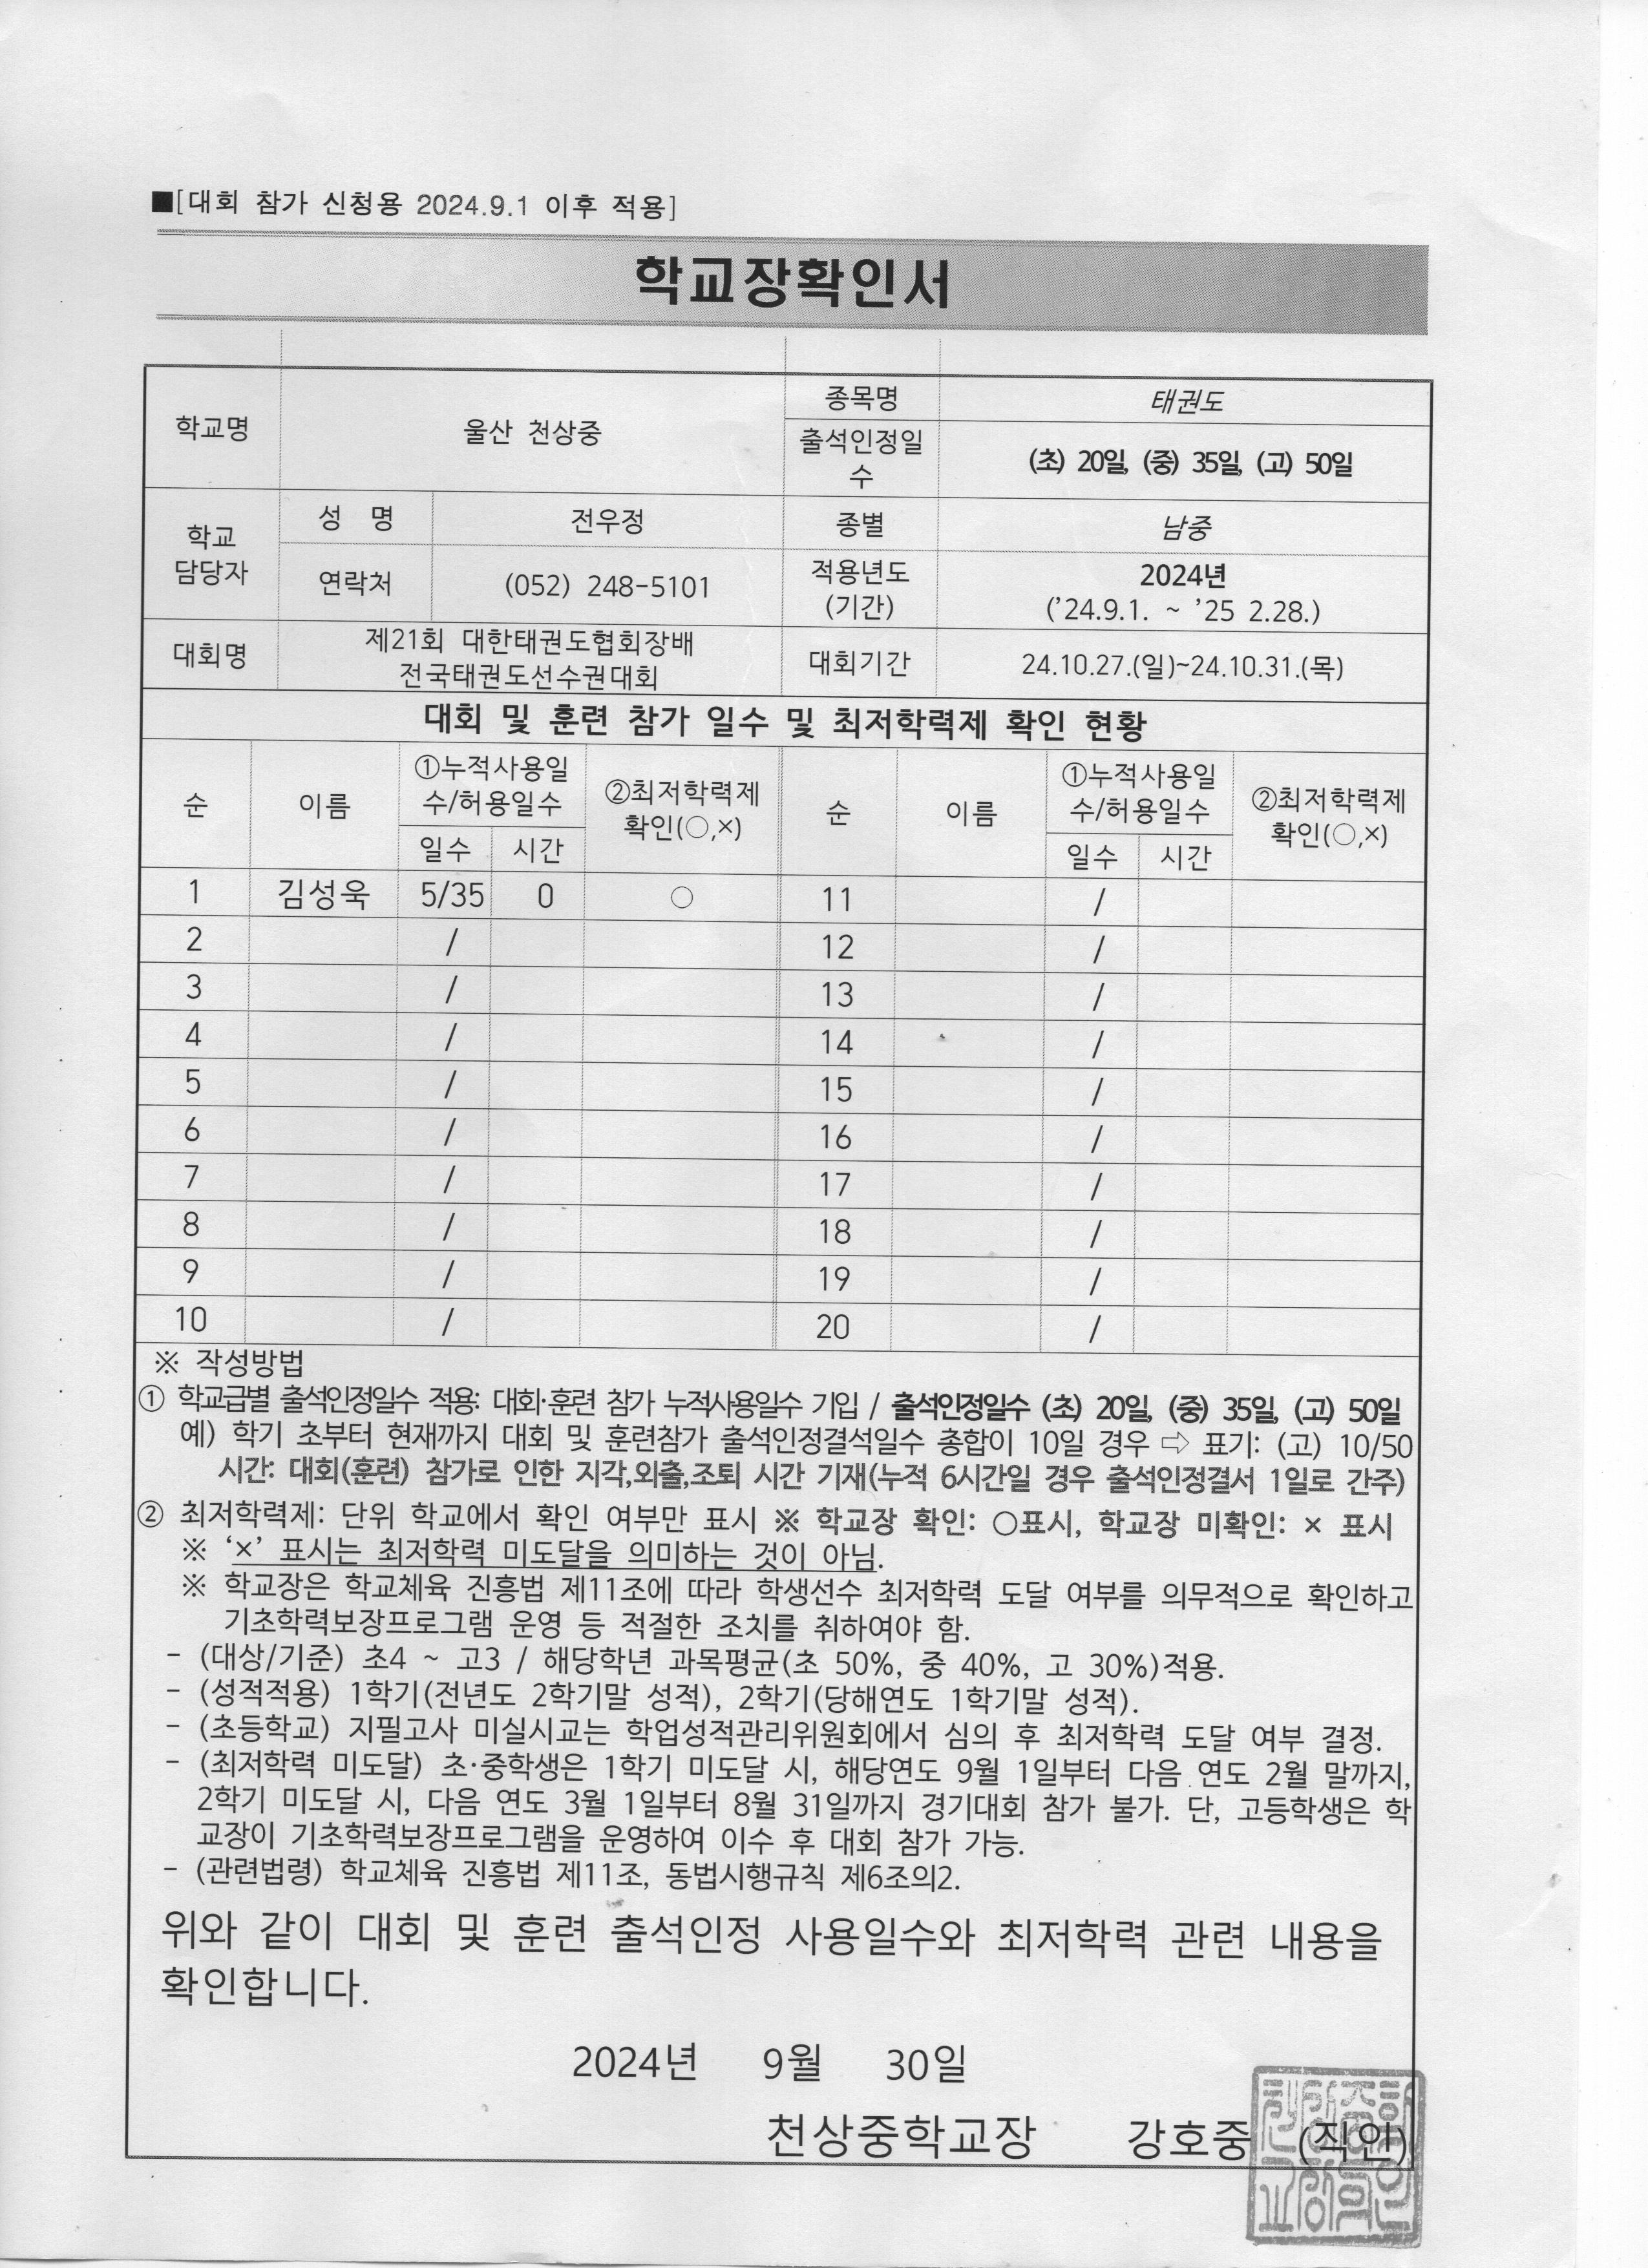 ■[대회 참가 신청용 2024.9.1 이후 적용]
학교장확인서
학교명
울산 천상중
종목명
태권도
출석인정일
수
(초) 20일, (중) 35일, (고) 50일
학교
담당자
성 명
전우정
종별
남중
연락처
(052) 248-5101
적용년도
(기간)
2024년
('24.9.1. ~ '25 2.28.)
대회명
제21회 대한태권도협회장배
전국태권도선수권대회
대회기간
24.10.27.(일)~24.10.31.(목)
대회 및 훈련 참가 일수 및 최저학력제 확인 현황
순 이름 ①누적사용일 수/허용일수 ②최저학력제 확인(○,×) 순 이름 ①누적사용일 수/허용일수 ②최저학력제 확인(○,×)
일수 시간 일수 시간
1 김성욱 5/35 0 ○ 11 /
2 / 12 /
3 / 13 /
4 / 14 /
5 / 15 /
6 / 16 /
7 / 17 /
8 / 18 /
9 / 19 /
10 / 20 /
※ 작성방법
① 학교급별 출석인정일수 적용: 대회·훈련 참가 누적사용일수 기입 / 출석인정일수 (초) 20일, (중) 35일, (고) 50일
예) 학기 초부터 현재까지 대회 및 훈련참가 출석인정결석일수 총합이 10일 경우 ⇨ 표기: (고) 10/50
시간: 대회(훈련) 참가로 인한 지각,외출,조퇴 시간 기재(누적 6시간일 경우 출석인정결서 1일로 간주)
② 최저학력제: 단위 학교에서 확인 여부만 표시 ※ 학교장 확인: ○표시, 학교장 미확인: × 표시
※ '×' 표시는 최저학력 미도달을 의미하는 것이 아님.
※ 학교장은 학교체육 진흥법 제11조에 따라 학생선수 최저학력 도달 여부를 의무적으로 확인하고
기초학력보장프로그램 운영 등 적절한 조치를 취하여야 함.
- (대상/기준) 초4 ~ 고3 / 해당학년 과목평균(초 50%, 중 40%, 고 30%)적용.
- (성적적용) 1학기(전년도 2학기말 성적), 2학기(당해연도 1학기말 성적).
- (초등학교) 지필고사 미실시교는 학업성적관리위원회에서 심의 후 최저학력 도달 여부 결정.
- (최저학력 미도달) 초·중학생은 1학기 미도달 시, 해당연도 9월 1일부터 다음 연도 2월 말까지,
2학기 미도달 시, 다음 연도 3월 1일부터 8월 31일까지 경기대회 참가 불가. 단, 고등학생은 학
교장이 기초학력보장프로그램을 운영하여 이수 후 대회 참가 가능.
- (관련법령) 학교체육 진흥법 제11조, 동법시행규칙 제6조의2.
위와 같이 대회 및 훈련 출석인정 사용일수와 최저학력 관련 내용을
확인합니다.
2024년 9월 30일
천상중학교장 강호중 (직인)